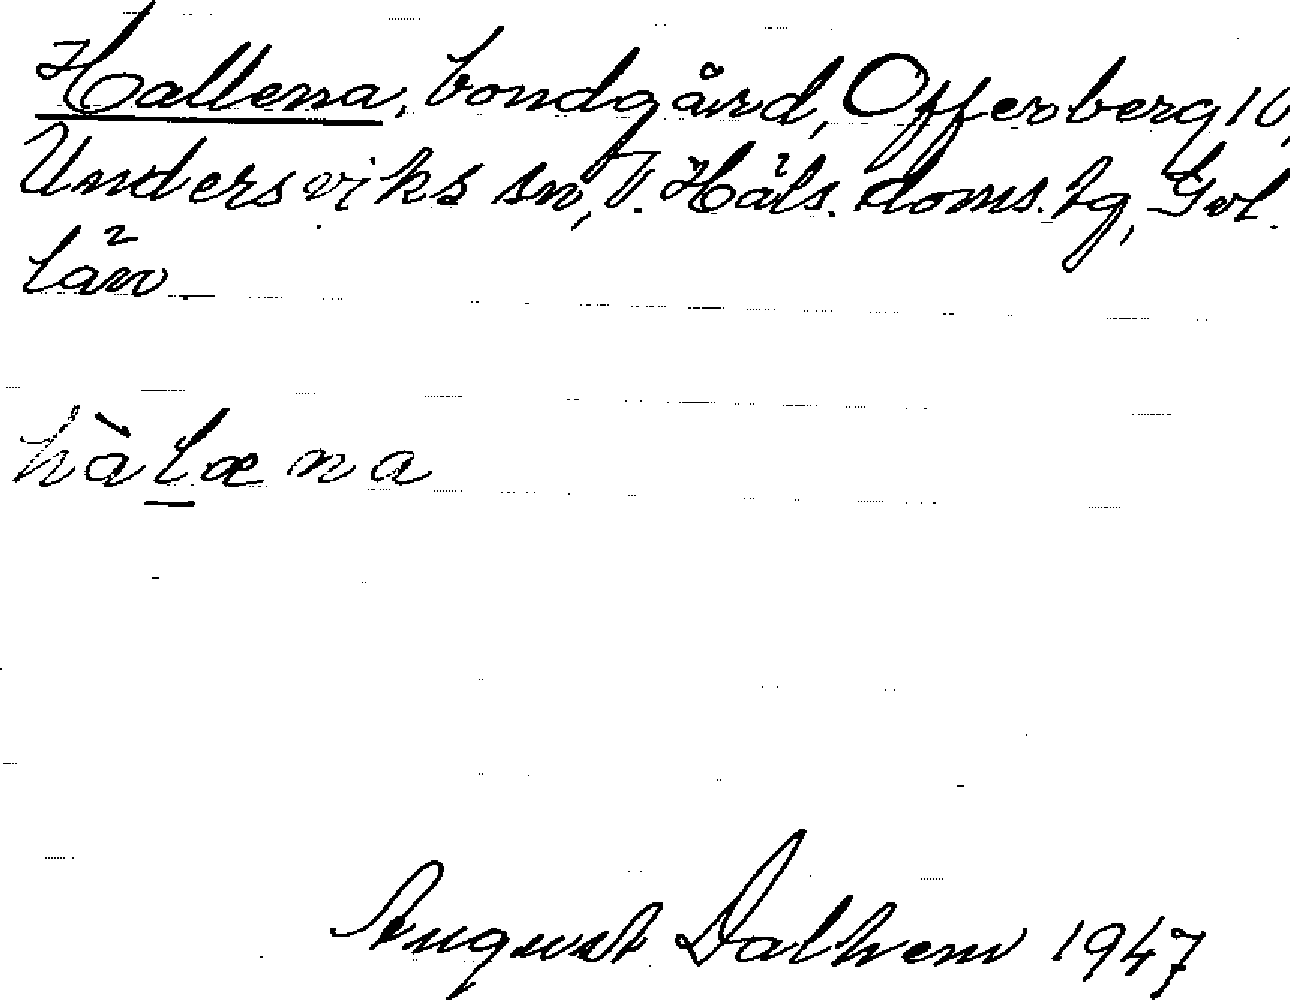 Hallena, bondgård, Offerberg 10,
Undersviks sn, V. Häls. doms. tg, Gvl.
län
hàlæna
August Dalhem 1947